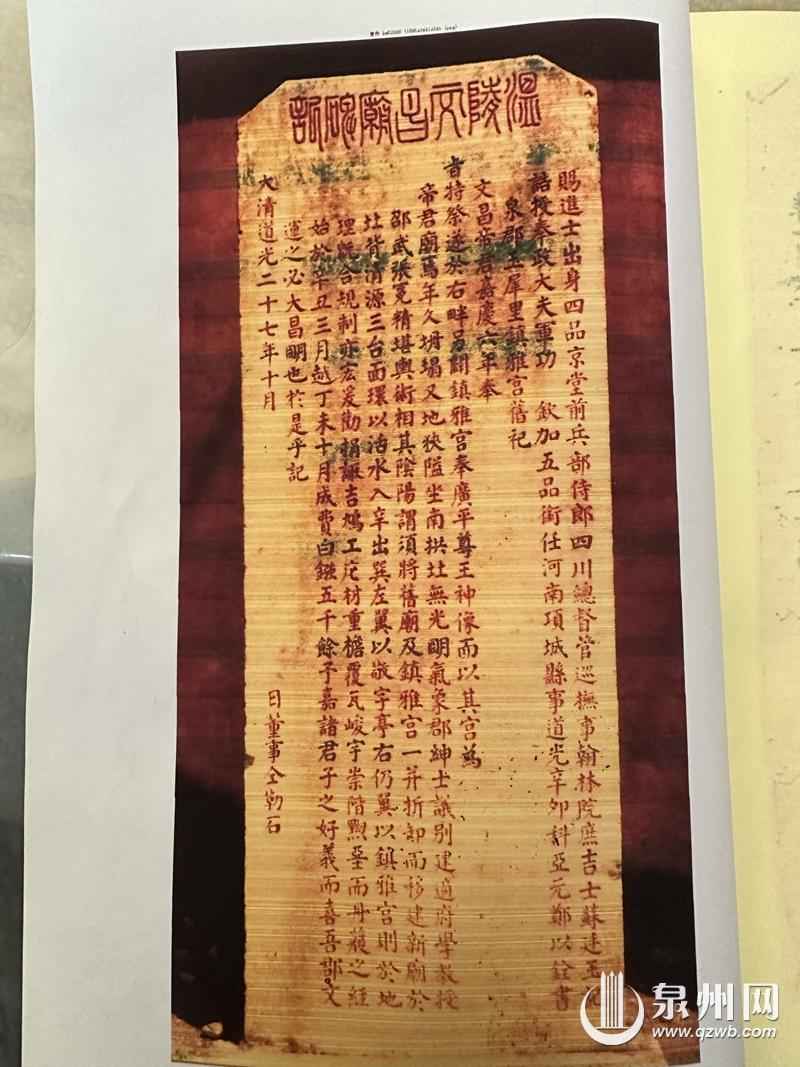 溫陵文昌廟碑記
賜進士出身四品京堂前兵部侍郎四川總督管巡撫事翰林院庶吉士蘇廷玉
誥授奉政大夫軍功 欽加五品銜任河南項城縣事道光辛卯科亞元鄭以銓書
泉郡玉犀里鎮雅宮舊祀
文昌帝君嘉慶六年奉
旨特祭遂於右畔另闢鎮雅宮奉廣平尊王神像而以其宮為
帝君廟焉年久塌又地狹隘坐南拱無光明氣象郡紳士議別建適府學教授
邵武張冕精堪輿術相其陰陽謂須將舊廟及鎮雅宮一并折卸而移建新廟於
背清源三台面環以活水入辛出巽左翼以敬字亭右仍翼以鎮雅宮則於地
理既合規制亦宏爰勸捐諏吉鳩工庀材重櫩覆瓦峻宇崇階黝堊而丹雘之經
始於辛丑三月越丁未十月成費白鏹五千餘予嘉諸君子之好義而喜吾郡文
運之必大昌明也於是乎記
大清道光二十七年十月 日董事仝勒石
泉州网
www.qzwb.com